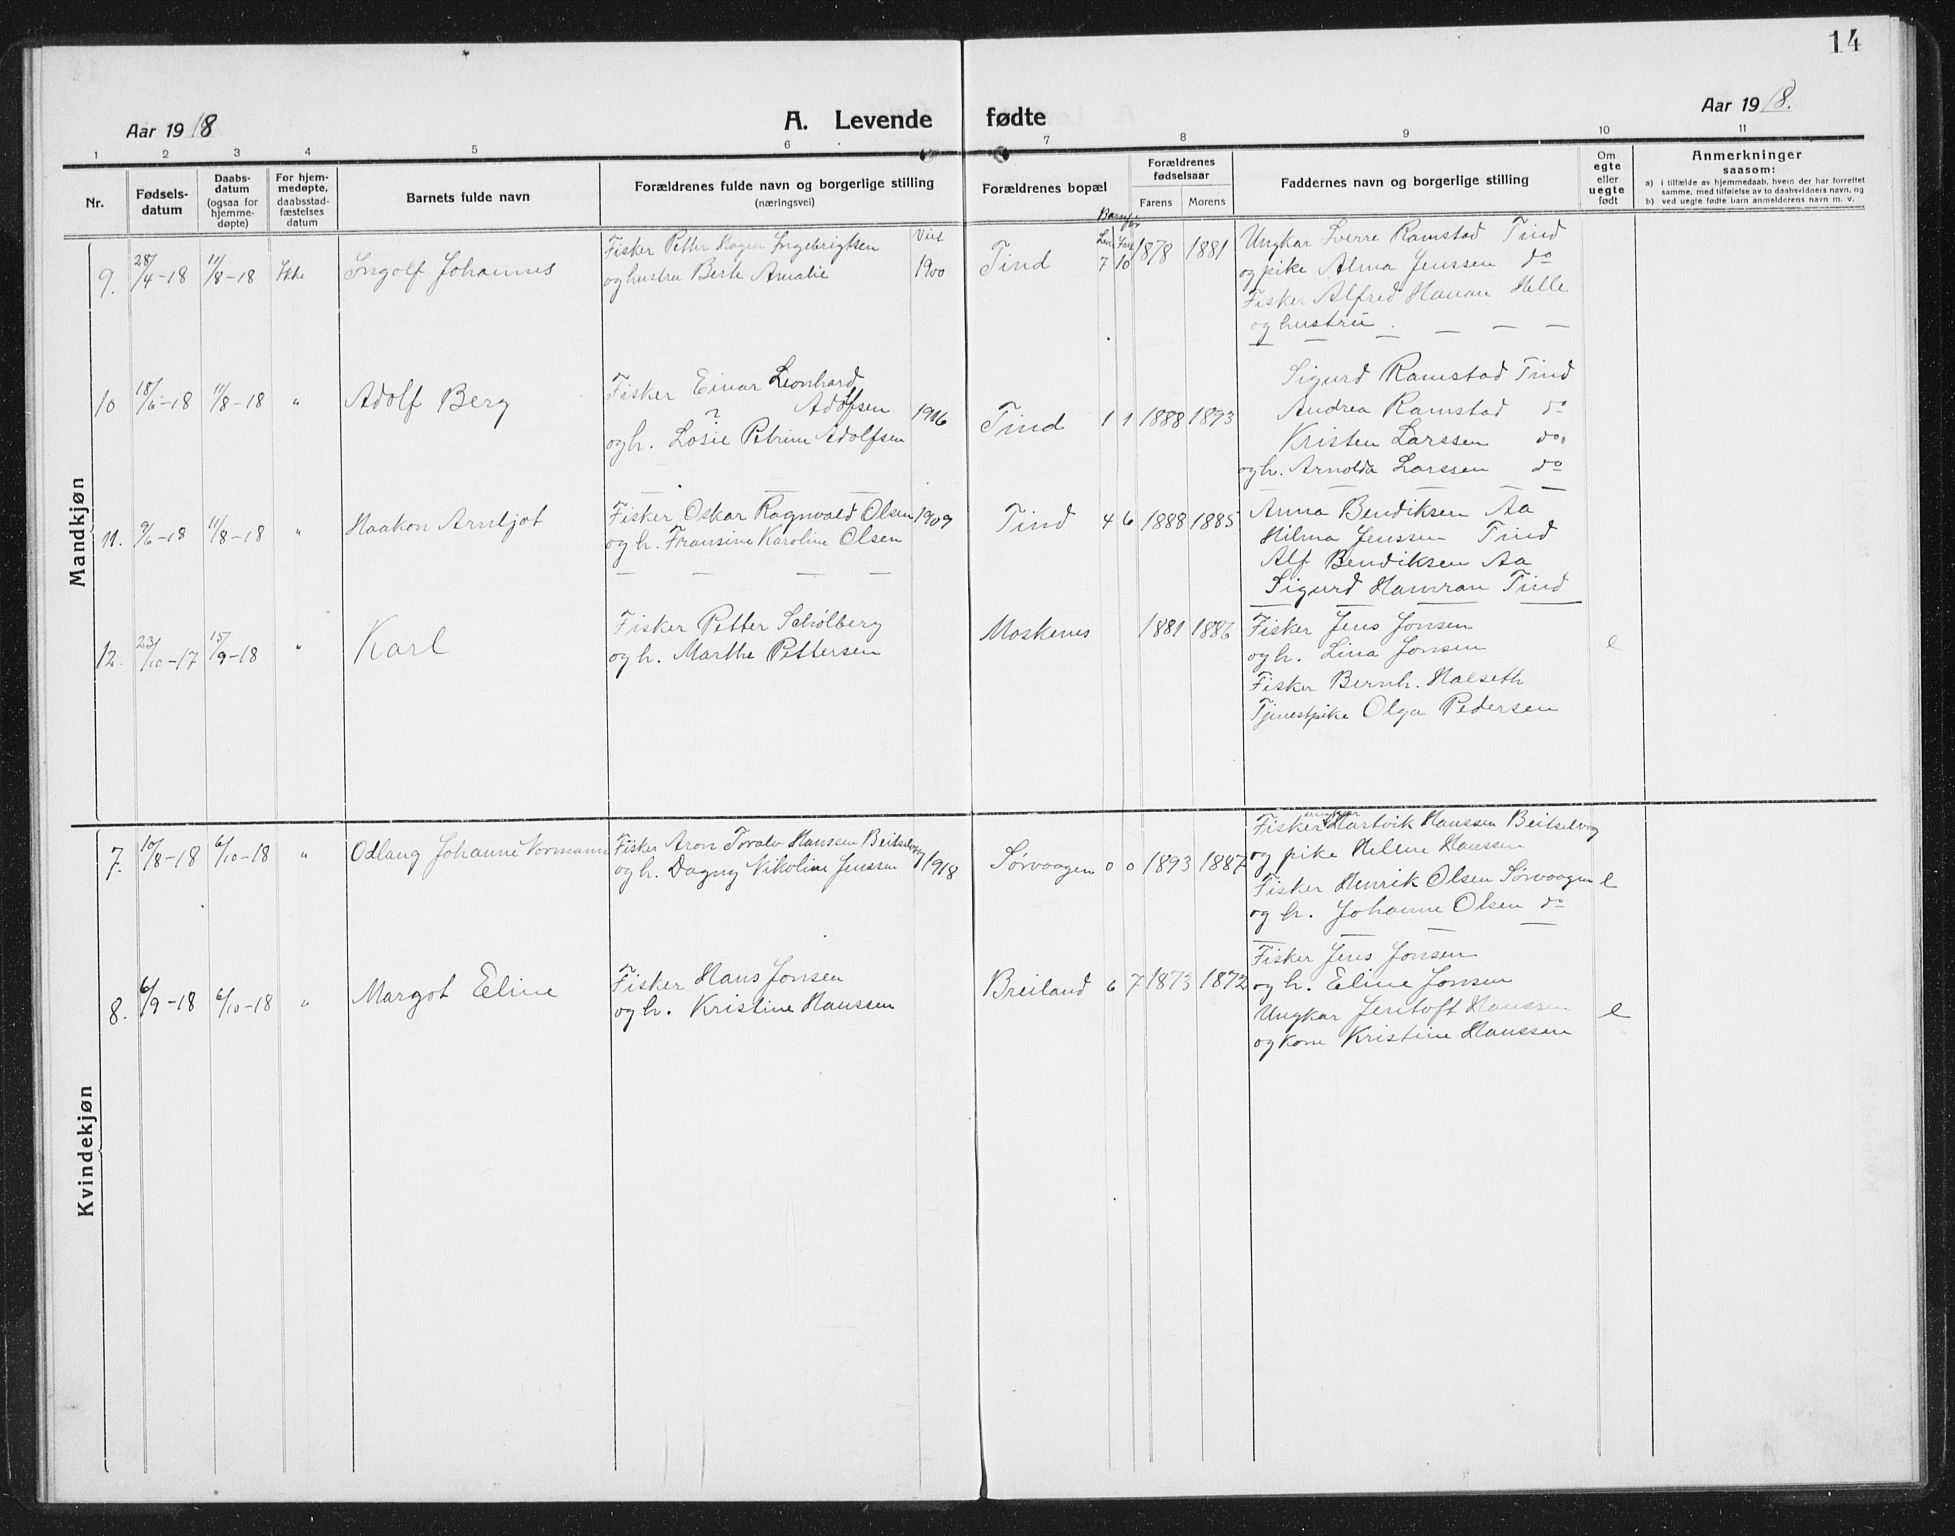 14
Aar 1918
A. Levende fødte
Aar 1918.
1 2 3 4 5 6 7 8 9 10 11
Nr.
Fødsels-
datum
Daabs-
datum
(ogsaa for
hjemme-
døpte)
For hjem-
medøpte,
daabsstad-
fæstelses
datum
Barnets fulde navn
Forældrenes fulde navn og borgerlige stilling
(næringsvei)
Forældrenes bopæl
Forældrenes
fødselsaar
Farens Morens
Faddernes navn og borgerlige stilling
Om
egte
eller
uegte
født
Anmerkninger
saasom:
a) i tilfælde av hjemmedaab, hvem der har forrettet
samme, med tilføielse av to daabsvidners navn, og
b) ved uegte fødte barn anmelderens navn m. v.
Mandkjøn
9. 28/4-18 11/8-18 Ingolf Johannes
Fisker Petter Hagen Ingebrigtsen
og hustru Berte Amalie
Viet
1900
Tind
7 10 1878 1881
Ungkar Sverre Ramstad Tind
og pike Alma Jenssen do
Fisker Alfred Hanan Helle
og hustru . — — —
10 18/6-18 11/8-18 " Adolf Berg
Fisker Einar Leonhard
Adolfsen
?
og h. Losie Petrine Adolfsen
1916
Tind 1 1 1888 1893
Sigurd Ramstad Tind
Andrea Ramstad do
Kristen Larssen do.
og h. Arnolda Larssen do
11. 9/6-18 11/8-18 " Haakon Arnljot
Fisker Oskar Ragnvald Olsen 1909
og h. Fransine Karoline Olsen
Tind 4 6 1888 1885
Anna Bendiksen Aa
Hilma Jenssen Tind
Alf Bendiksen Aa
Sigurd Hamran Tind
12. 23/10-17 15/9-18 " Karl
Fisker Petter Schølberg
og h. Marthe Pettersen
Moskenes 1881 1886
Fisker Jens Jonsen
og h. Lina Jonsen
Fisker Bernh. Halseth
Tjenestpike Olga Pedersen
e
Kvindekjøn
7. 10/8-18 6/10-18 " Odlaug Johanne Normann
Fisker Aron Toralv Hanssen Beitselvog
og h. Dagny Nikoline Jenssen
1918
Sørvaagen 0 0 1893 1887
ungkar
Fisker Hartvik Hanssen Beitselvog
og pike Helene Hanssen
Fisker Henrik Olsen Sørvaagen e
og h. Johanne Olsen do
8. 6/9-18 6/10-18 " Margot Eline
Fisker Hans Jonsen
og h. Kristine Hanssen
Breiland 6 7 1873 1872
Fisker Jens Jonsen
og h. Eline Jonsen
Ungkar Jentoft Hanssen e
og kone Kristine Hanssen